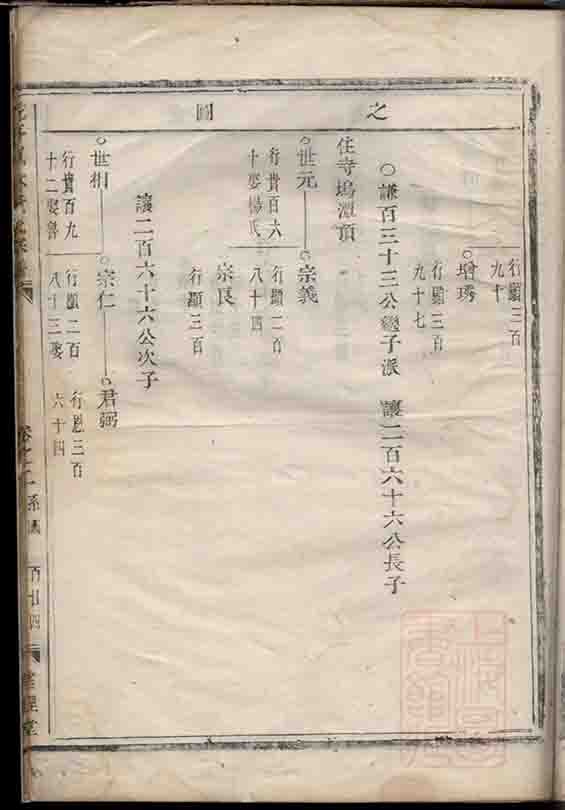 之圖
行顯三百
九十
增琇
行顯三百
九十七
謙百三十三公繼子派 讓二百六十六公長子
住寺塢潭頂
世元
行貴百六
十娶楊氏
宗義
行顯二百
八十四
宗良
行顯三百
讓二百六十六公次子
世相
行貴百九
十二娶魯
宗仁
行顯二百
八十三娶
君弼
行恩三百
六十四
系圖 百廿四